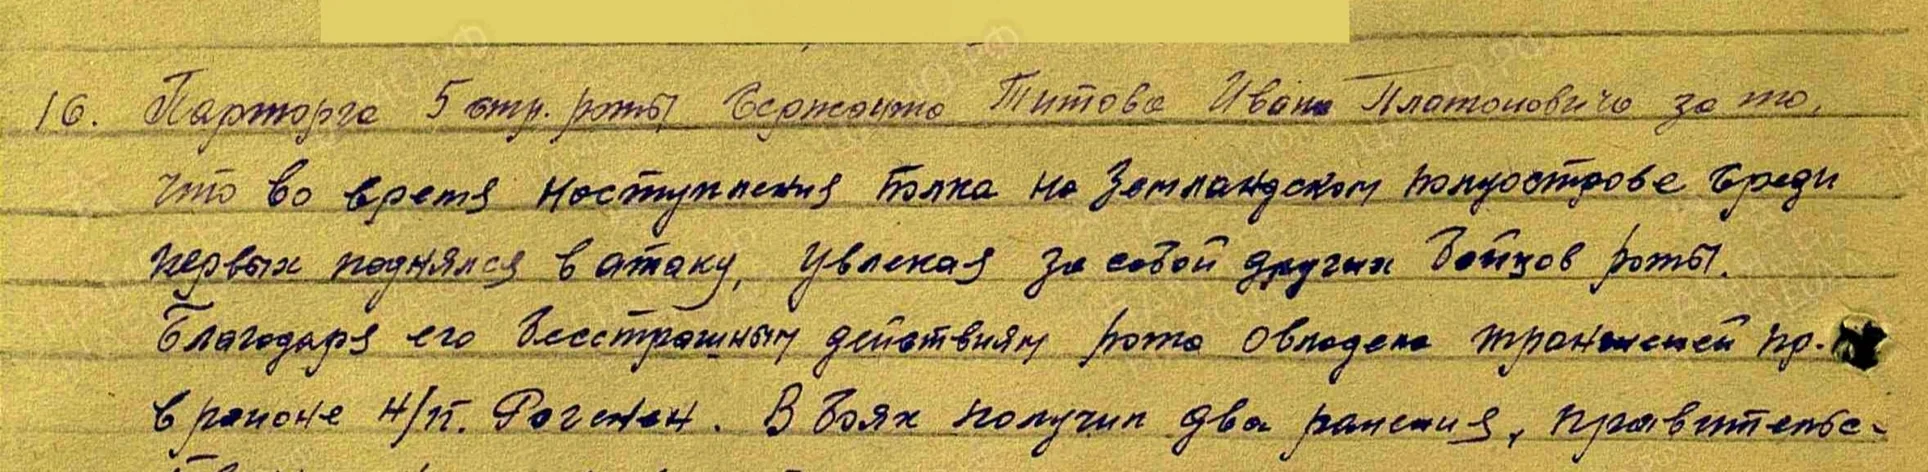 16. Парторга 5 стр. роты Сержанта Титова Ивана Платоновича за то,
что во время наступления полка на Земландском полуострове среди
первых поднялся в атаку, увлекая за собой других бойцов роты.
Благодаря его бесстрашным действиям рота овладела траншеей пр.
в районе н/п. Рогенен. В боях получил два ранения, правительс-